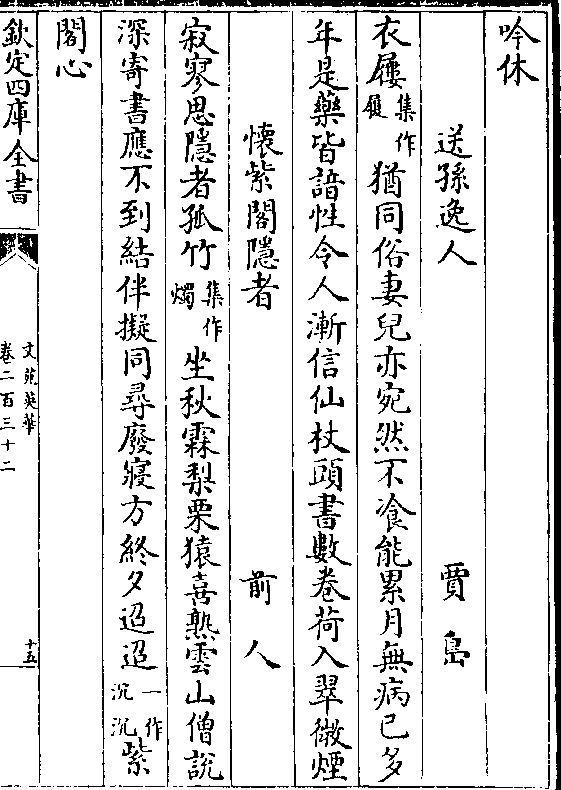 吟休
送孫逸人　賈島
衣屨集作履猶同俗妻兒亦宛然不飡能累月無病已多
年是藥皆諳性令人漸信仙杖頭書數卷荷入翠微煙
懷紫閣隱者　前人
寂寥思隱者孤竹集作燭坐秋霖梨栗猿喜熟雲山僧說
深寄書應不到結伴擬同尋廢寢方終夕迢迢一作沉沉紫
閣心
欽定四庫全書
文苑英華
卷二百三十二
十五